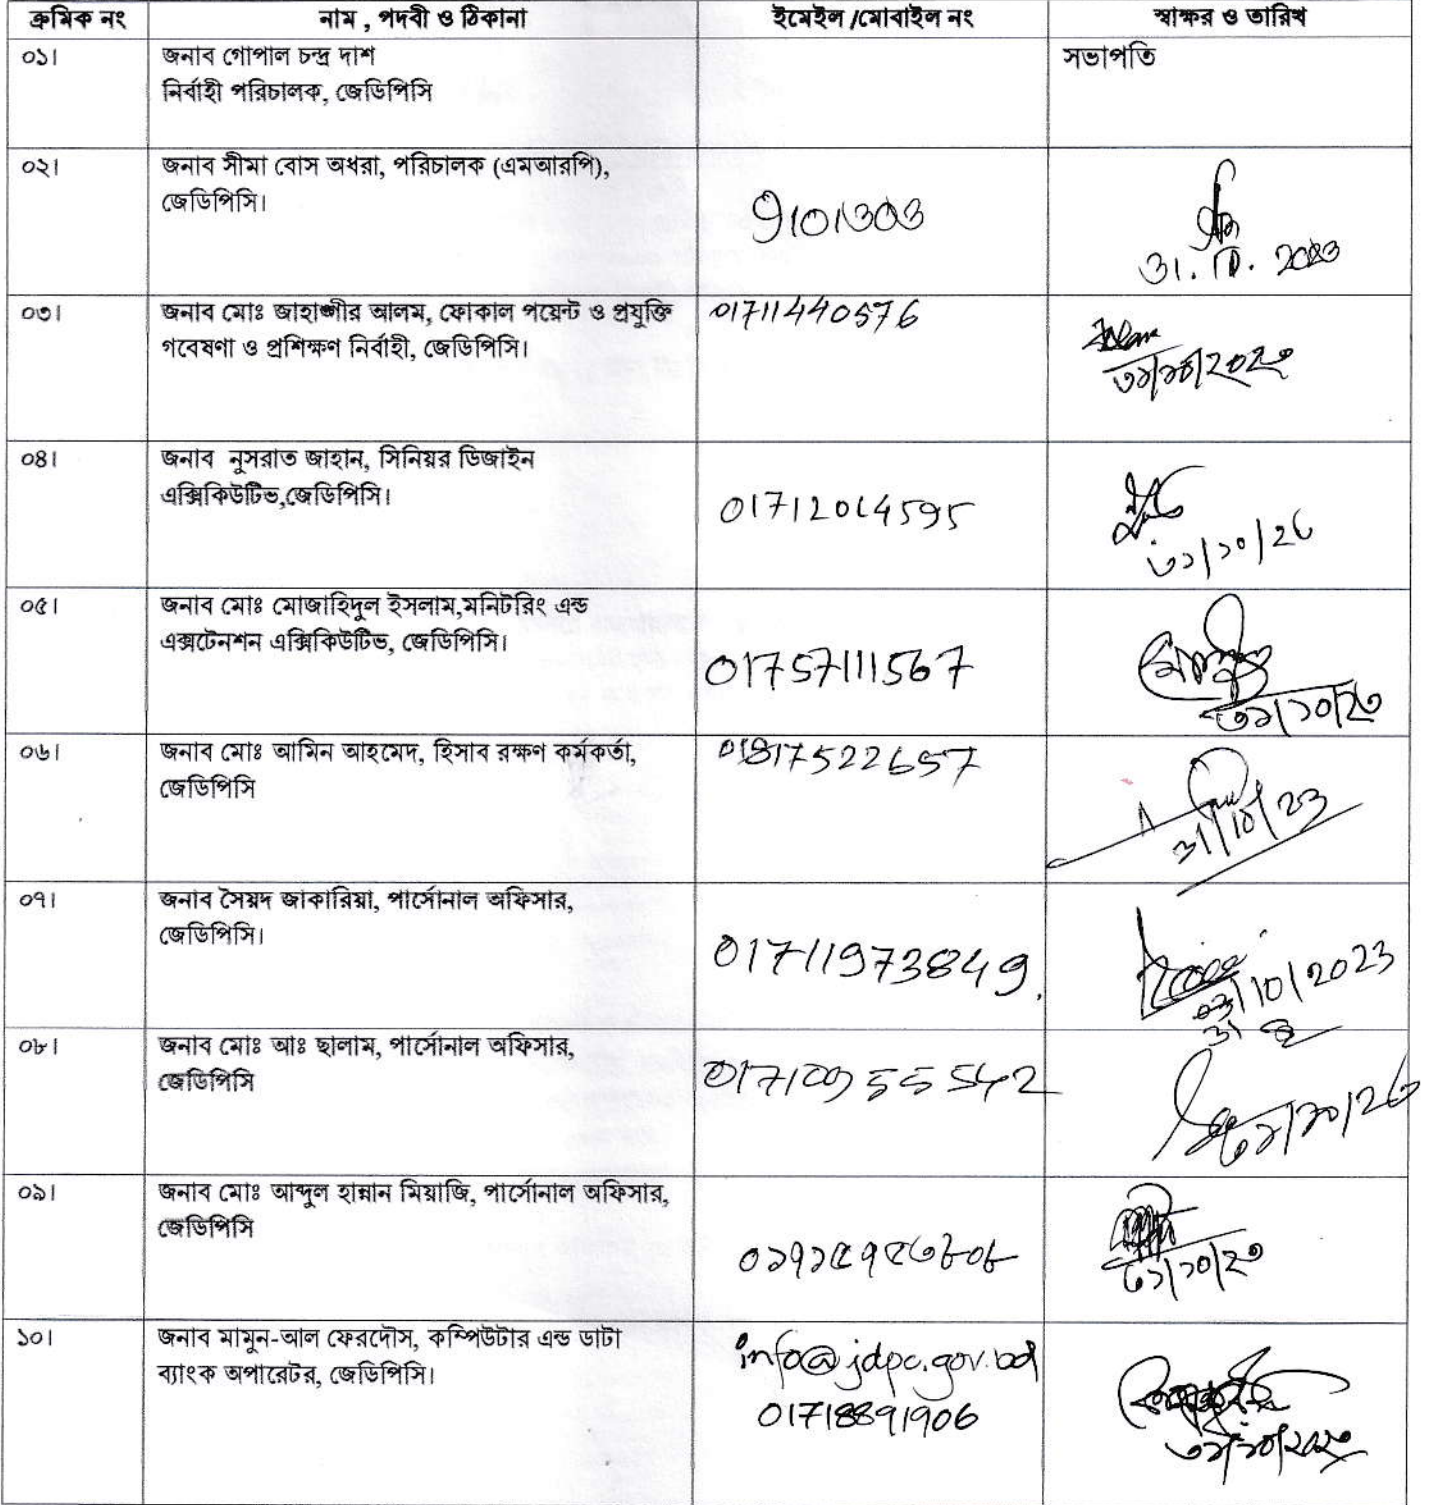 ক্রমিক নং নাম , পদবী ও ঠিকানা ইমেইল /মোবাইল নং স্বাক্ষর ও তারিখ
০১। জনাব গোপাল চন্দ্র দাশ সভাপতি
নির্বাহী পরিচালক, জেডিপিসি
০২। জনাব সীমা বোস অধরা, পরিচালক (এমআরপি),
জেডিপিসি।
9101303
31. 10. 2023
০৩। জনাব মোঃ জাহাঙ্গীর আলম, ফোকাল পয়েন্ট ও প্রযুক্তি 01711440576
গবেষণা ও প্রশিক্ষণ নির্বাহী, জেডিপিসি।
৩১/১০/২০২৩
০৪। জনাব নুসরাত জাহান, সিনিয়র ডিজাইন
এক্সিকিউটিভ,জেডিপিসি। 01712014595
৩১/১০/২৩
০৫। জনাব মোঃ মোজাহিদুল ইসলাম,মনিটরিং এন্ড
এক্সটেনশন এক্সিকিউটিভ, জেডিপিসি।
01757111567
৩১/১০/২৩
০৬। জনাব মোঃ আমিন আহমেদ, হিসাব রক্ষণ কর্মকর্তা, 01817522657
জেডিপিসি
31/10/23
০৭। জনাব সৈয়দ জাকারিয়া, পার্সোনাল অফিসার,
জেডিপিসি।
01711973849.
/10/2023
31
০৮। জনাব মোঃ আঃ ছালাম, পার্সোনাল অফিসার,
জেডিপিসি
৩১/১০/২৩
০৯। জনাব মোঃ আব্দুল হান্নান মিয়াজি, পার্সোনাল অফিসার,
জেডিপিসি
০১৭১৫৭৫৩৮০৮
৩১/১০/২৩
১০। জনাব মামুন-আল ফেরদৌস, কম্পিউটার এন্ড ডাটা info@jdpc.gov.bd
ব্যাংক অপারেটর, জেডিপিসি।
01718891906
৩১/১০/২০২৩